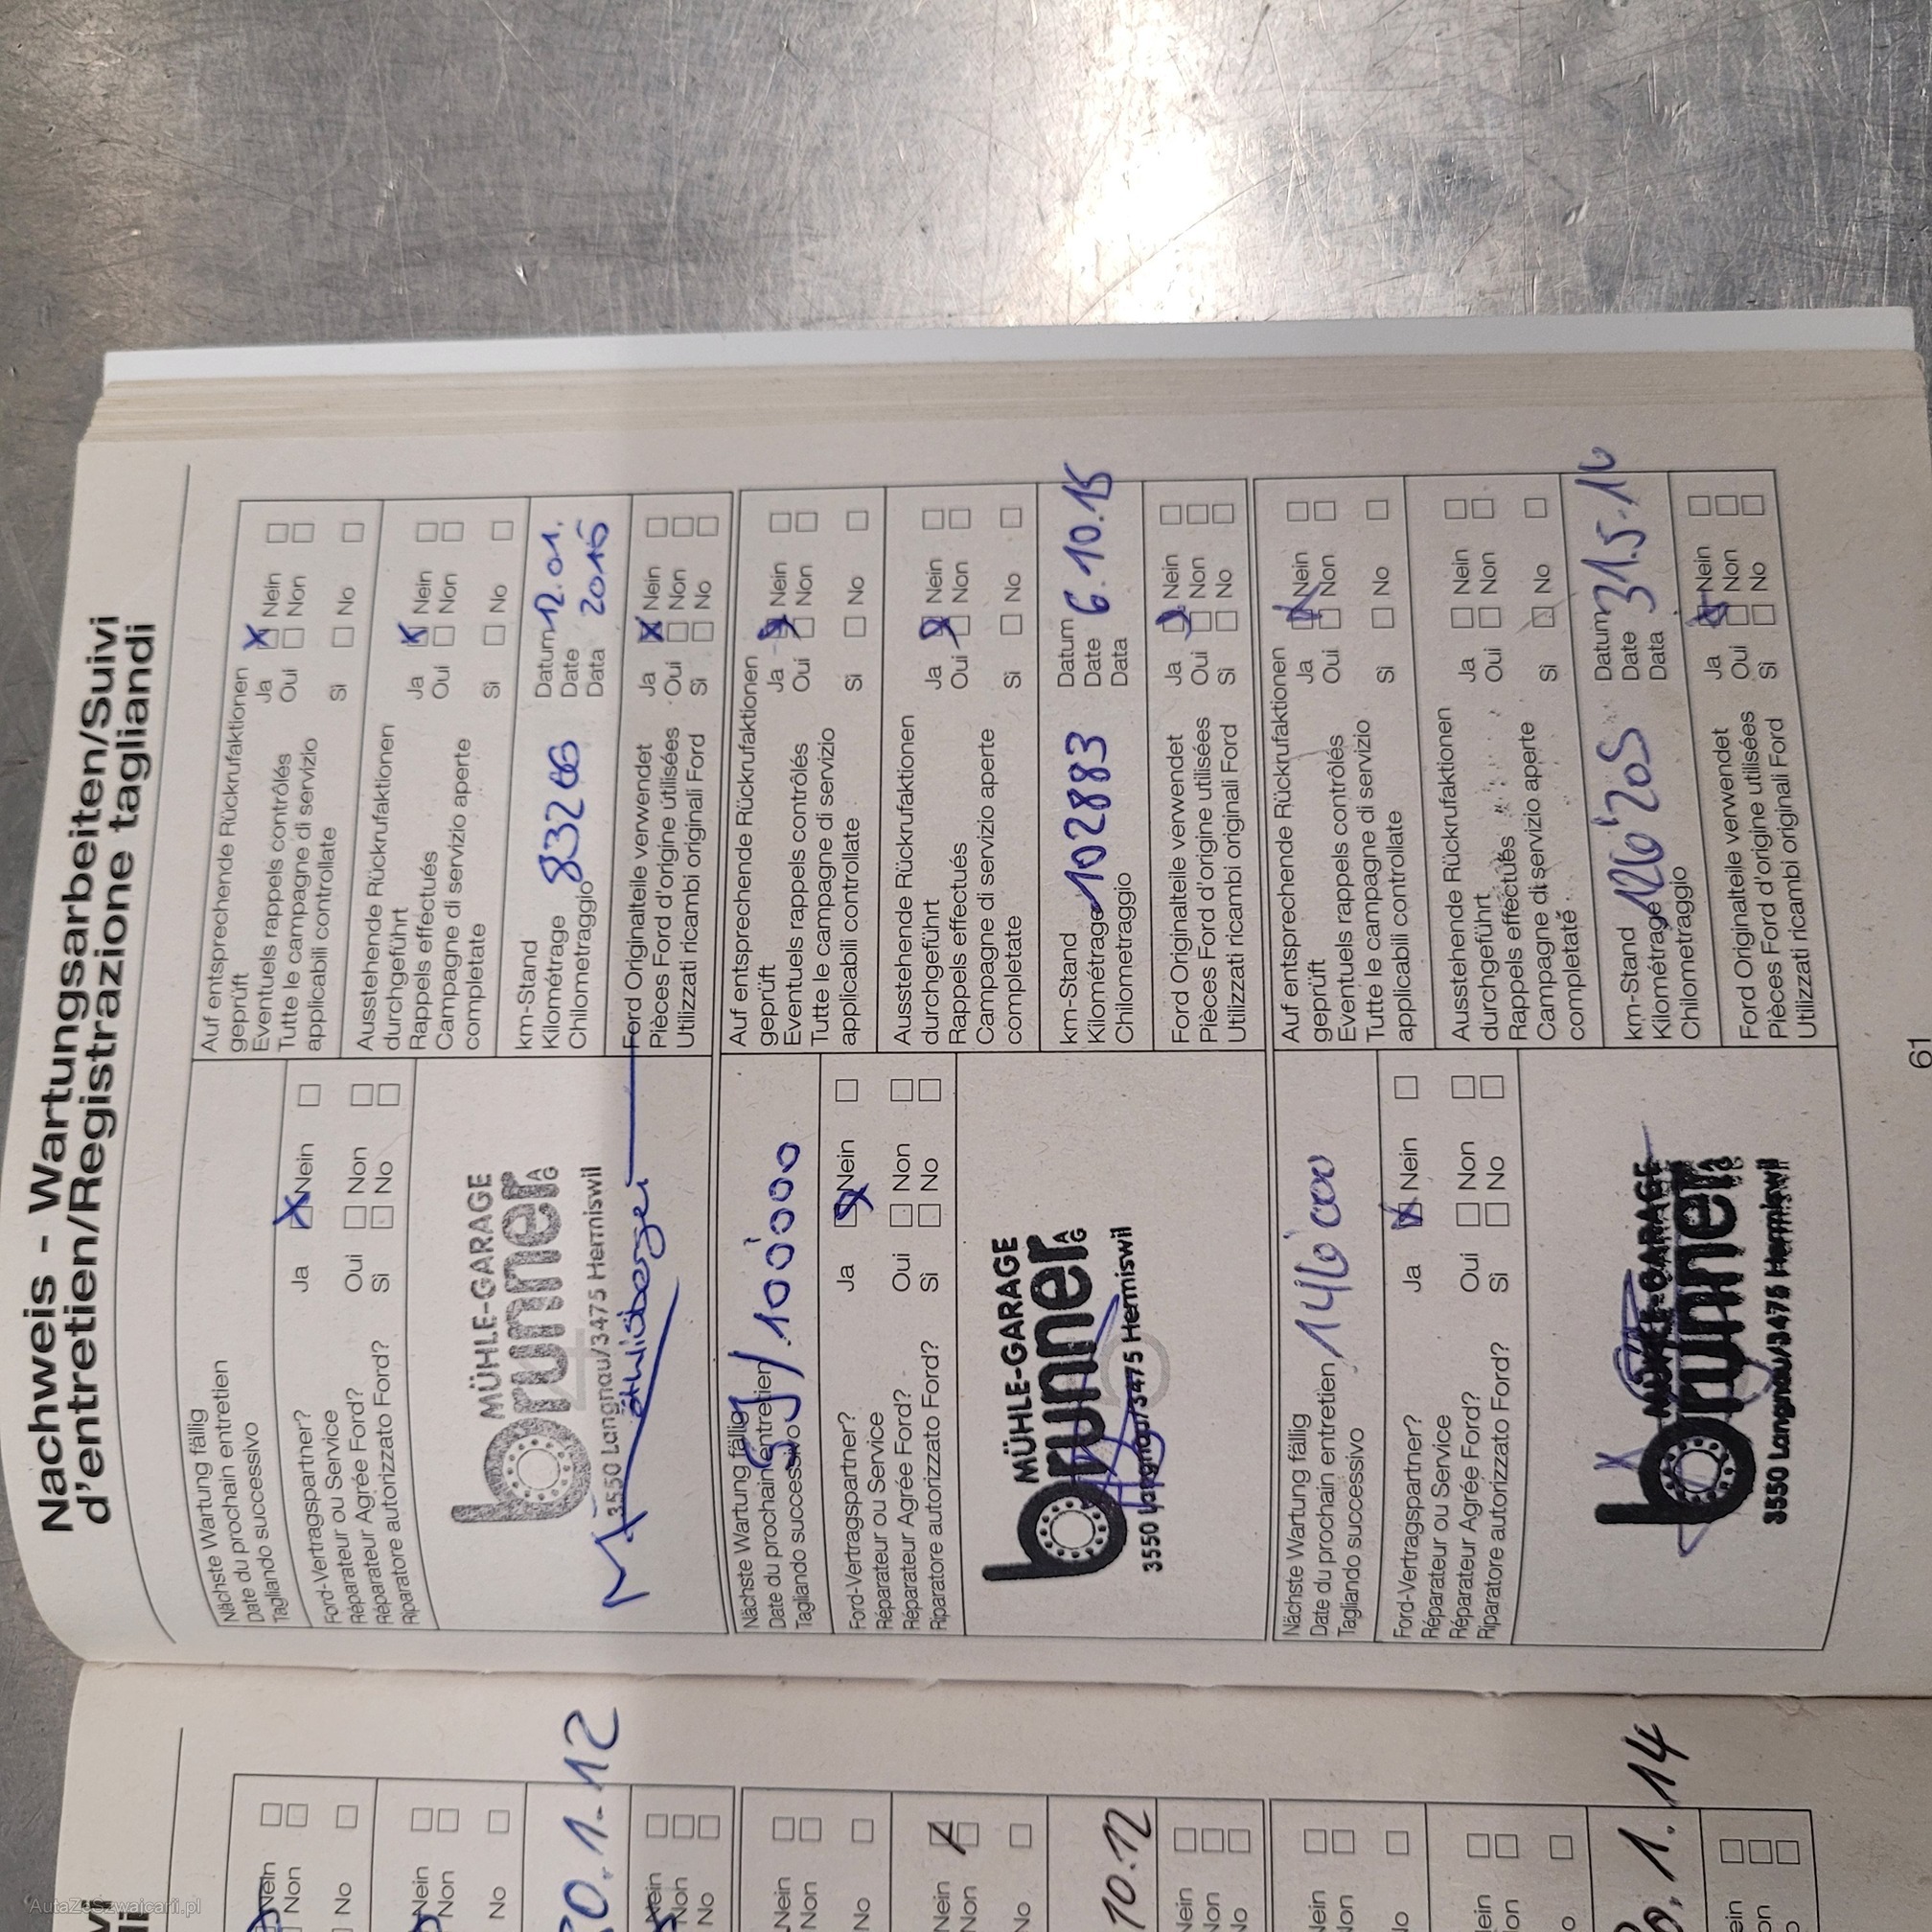 Nachweis - Wartungsarbeiten/Suivi
d'entretien/Registrazione tagliandi
Nächste Wartung fällig
Date du prochain entretien
Tagliando successivo
Ford-Vertragspartner?
Réparateur ou Service
Réparateur Agrée Ford?
Riparatore autorizzato Ford?
Ja Nein
Oui Non
Si No
MÜHLE-GARAGE
brunner AG
3550 Langnau/3475 Hermiswil
Auf entsprechende Rückrufaktionen
geprüft
Eventuels rappels contrôlés
Tutte le campagne di servizio
applicabili controllate
Ja Nein
Oui Non
Si No
Ausstehende Rückrufaktionen
durchgeführt
Rappels effectués
Campagne di servizio aperte
completate
Ja Nein
Oui Non
Si No
km-Stand
Kilométrage
Chilometraggio
Datum 12.01.
Date
Data
Ford Originalteile verwendet
Pièces Ford d'origine utilisées
Utilizzati ricambi originali Ford
Ja Nein
Oui Non
Si No
Nächste Wartung fällig
Date du prochain entretien
Tagliando successivo
Ford-Vertragspartner?
Réparateur ou Service
Réparateur Agrée Ford?
Riparatore autorizzato Ford?
Ja Nein
Oui Non
Si No
MÜHLE-GARAGE
brunner AG
3550 Langnau/3475 Hermiswil
Auf entsprechende Rückrufaktionen
geprüft
Eventuels rappels contrôlés
Tutte le campagne di servizio
applicabili controllate
Ja Nein
Oui Non
Si No
Ausstehende Rückrufaktionen
durchgeführt
Rappels effectués
Campagne di servizio aperte
completate
Ja Nein
Oui Non
Si No
km-Stand
Kilométrage 102883
Chilometraggio
Datum
Date 6.10.15
Data
Ford Originalteile verwendet
Pièces Ford d'origine utilisées
Utilizzati ricambi originali Ford
Ja Nein
Oui Non
Si No
Nächste Wartung fällig
Date du prochain entretien 146'000
Tagliando successivo
Ford-Vertragspartner?
Réparateur ou Service
Réparateur Agrée Ford?
Riparatore autorizzato Ford?
Ja Nein
Oui Non
Si No
MÜHLE-GARAGE
brunner AG
3550 Langnau/3475 Hermiswil
Auf entsprechende Rückrufaktionen
geprüft
Eventuels rappels contrôlés
Tutte le campagne di servizio
applicabili controllate
Ja Nein
Oui Non
Si No
Ausstehende Rückrufaktionen
durchgeführt
Rappels effectués
Campagne di servizio aperte
completate
Ja Nein
Oui Non
Si No
km-Stand
Kilométrage 126'205
Chilometraggio
Datum
Date 31.5.16
Data
Ford Originalteile verwendet
Pièces Ford d'origine utilisées
Utilizzati ricambi originali Ford
Ja Nein
Oui Non
Si No
61
Nein
Non
No
Nein
Non
No
0.1.12
Nein
Non
No
Nein
Non
No
Nein
Non
No
10.12
Nein
Non
No
Nein
Non
No
Nein
Non
No
1.14
Nein
Non
No
AutaZeSzwajcarii.pl